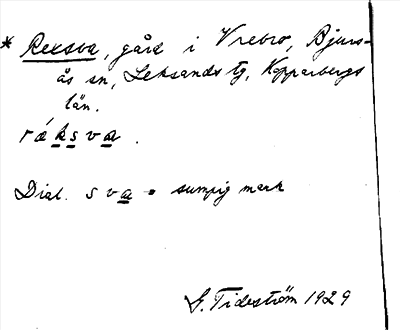 * Rexsva, gård i Vrebro, Bjurs-
ås sn, Leksands tg, Kopparbergs
län.
ráksva.
Dial. sva = sumpig mark
G. Tideström 1929